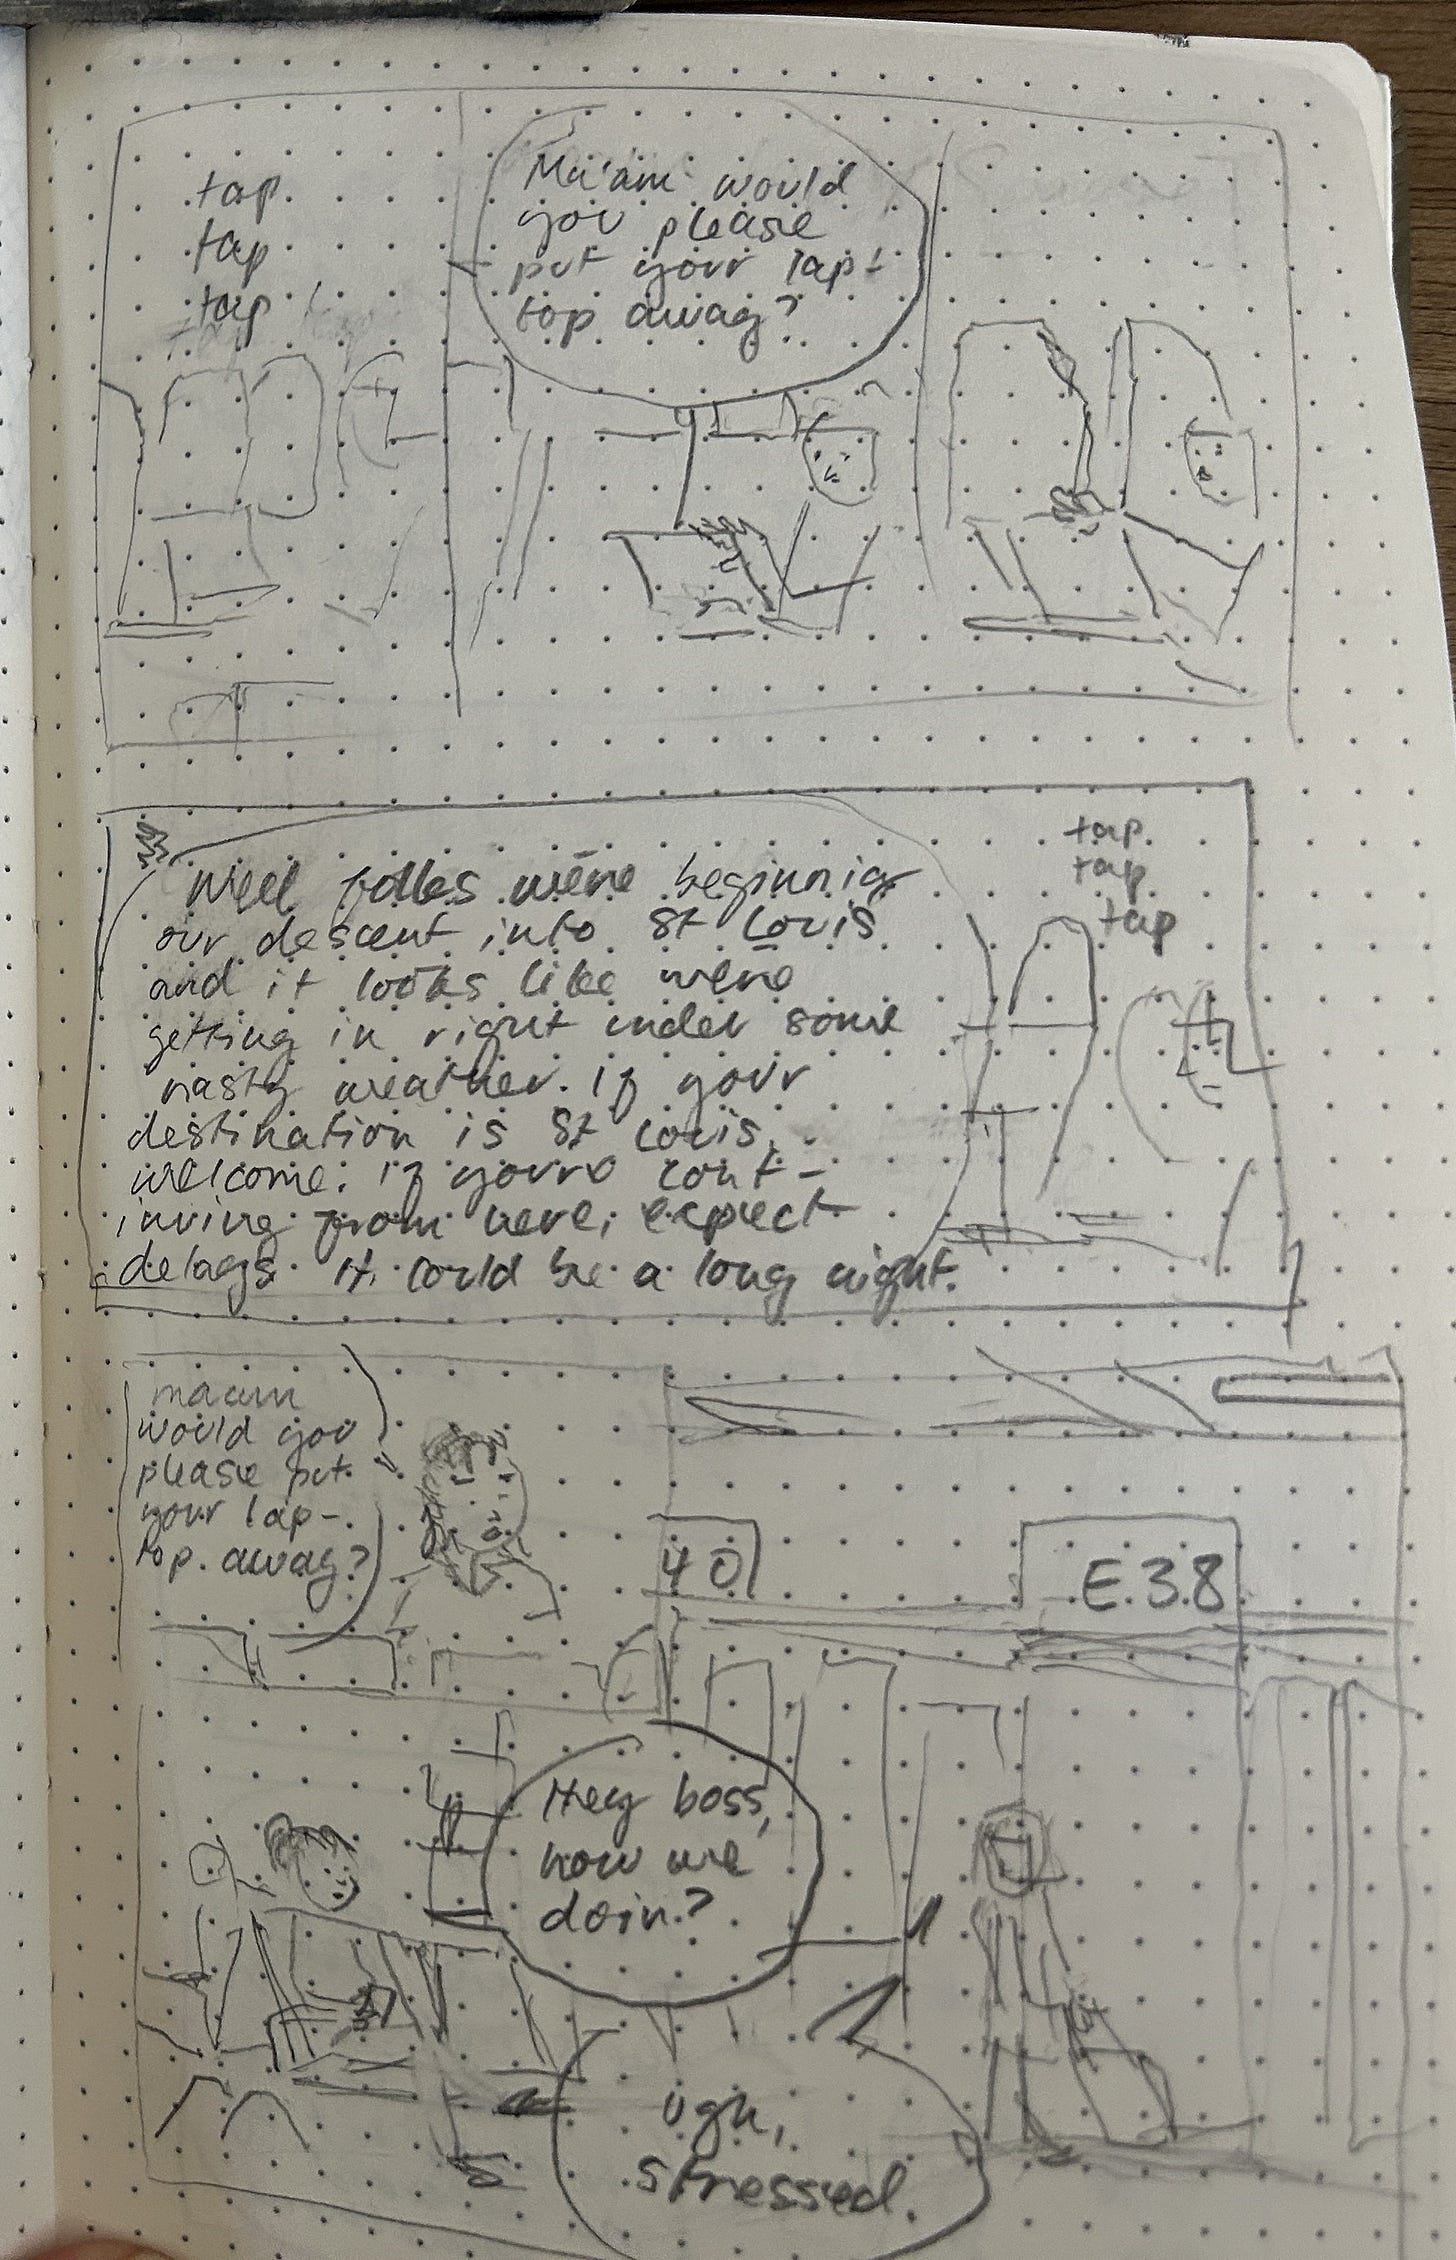 tap
tap
tap
Ma'am would
you please
put your lap-
top away?
Well folks we're beginning
our descent into St Louis
and it looks like we're
getting in right under some
nasty weather. If your
destination is St Louis,
welcome. if you're cont-
inuing from here, expect
delays. It could be a long night.
tap
tap
tap
ma'am
would you
please put
your lap-
top away?
40
E38
Hey boss,
how we
doin?
ugh,
stressed.